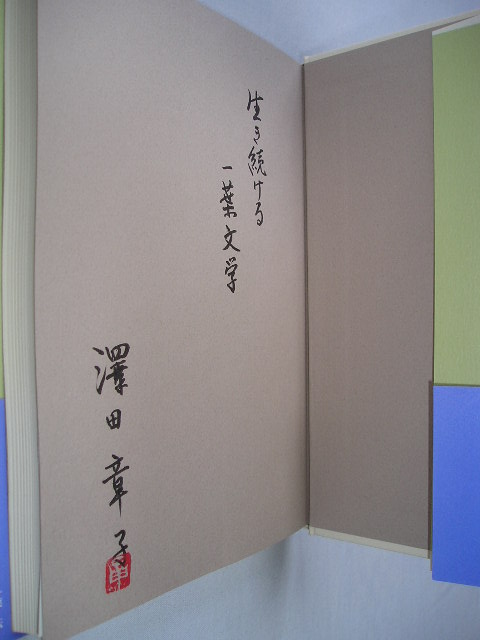 生き続ける
一葉文学
澤田章子